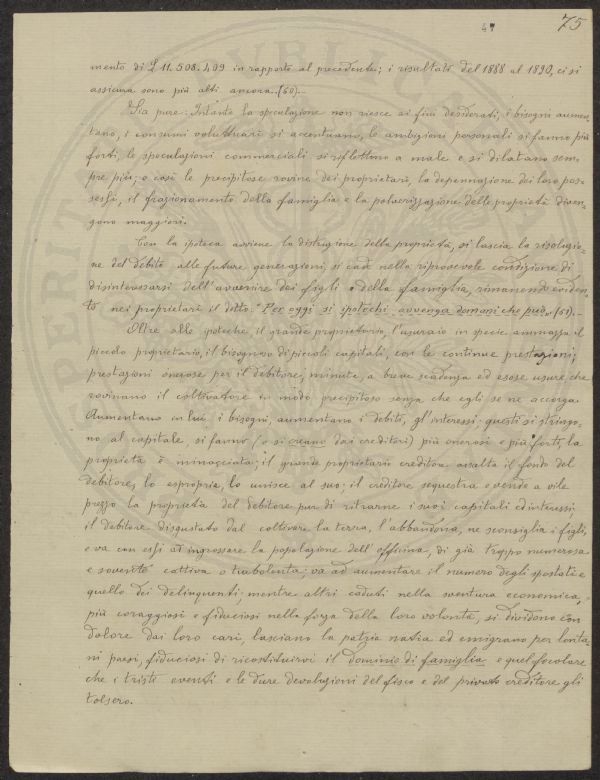 47 75
mento di £ 11.508.409 in rapporto al precedente; i risultati del 1888 al 1890, ci si
assicura sono più alti ancora. (60).-
Sia pure: Intanto la speculazione non riesce ai fini desiderati, i bisogni aumen-
tano, i consumi voluttuari si accentuano, le ambizioni personali si fanno più
forti, le speculazioni commerciali si riflettono a male e si dilatano sem-
pre più; e così le precipitose rovine dei proprietari, la depennazione dei loro pos-
sessi, il frazionamento della famiglia e la polverizzazione delle proprietà diven-
gono maggiori.
Con la ipoteca avviene la distruzione della proprietà, si lascia la risoluzio-
ne del debito alle future generazioni, si cade nella riprovevole condizione di
disinteressarsi dell'avvenire dei figli e della famiglia, rimanendo eviden-
te nei proprietari il detto: "Per oggi si ipotechi avvenga domani che può, (61).-
Oltre alle ipoteche, il grande proprietario, l'usuraio in specie ammazza il
piccolo proprietario, il bisognoso di piccoli capitali, con le continue prestazioni;
prestazioni onerose per il debitore, minute, a breve scadenza ed esose usure che
rovinano il coltivatore in modo precipitoso senza che egli se ne accorga.
Aumentano in lui i bisogni, aumentano i debiti, gl'interessi; questi si stringo-
no al capitale, si fanno (o si creano dai creditori) più onerosi e più forti, la
proprietà è minacciata; il grande proprietario creditore assalta il fondo del
debitore, lo espropria, lo unisce al suo; il creditore sequestra e vende a vile
prezzo la proprietà del debitore pur di ritrarne i suoi capitali ed interessi;
il debitore disgustato dal coltivare la terra, l'abbandona, ne sconsiglia i figli,
e va con essi ad ingrossare la popolazione dell'officina, di già troppo numerosa
e sovente cattiva o turbolenta; va ad aumentare il numero degli spostati e
quello dei delinquenti; mentre altri caduti nella sventura economica,
più coraggiosi e fiduciosi nella forza della loro volontà, si dividono con
dolore dai loro cari, lasciano la patria natia ed emigrano per lonta-
ni paesi, fiduciosi di ricostituirvi il dominio di famiglia e quel focolare
che i tristi eventi e le dure devoluzioni del fisco e del privato creditore gli
tolsero.